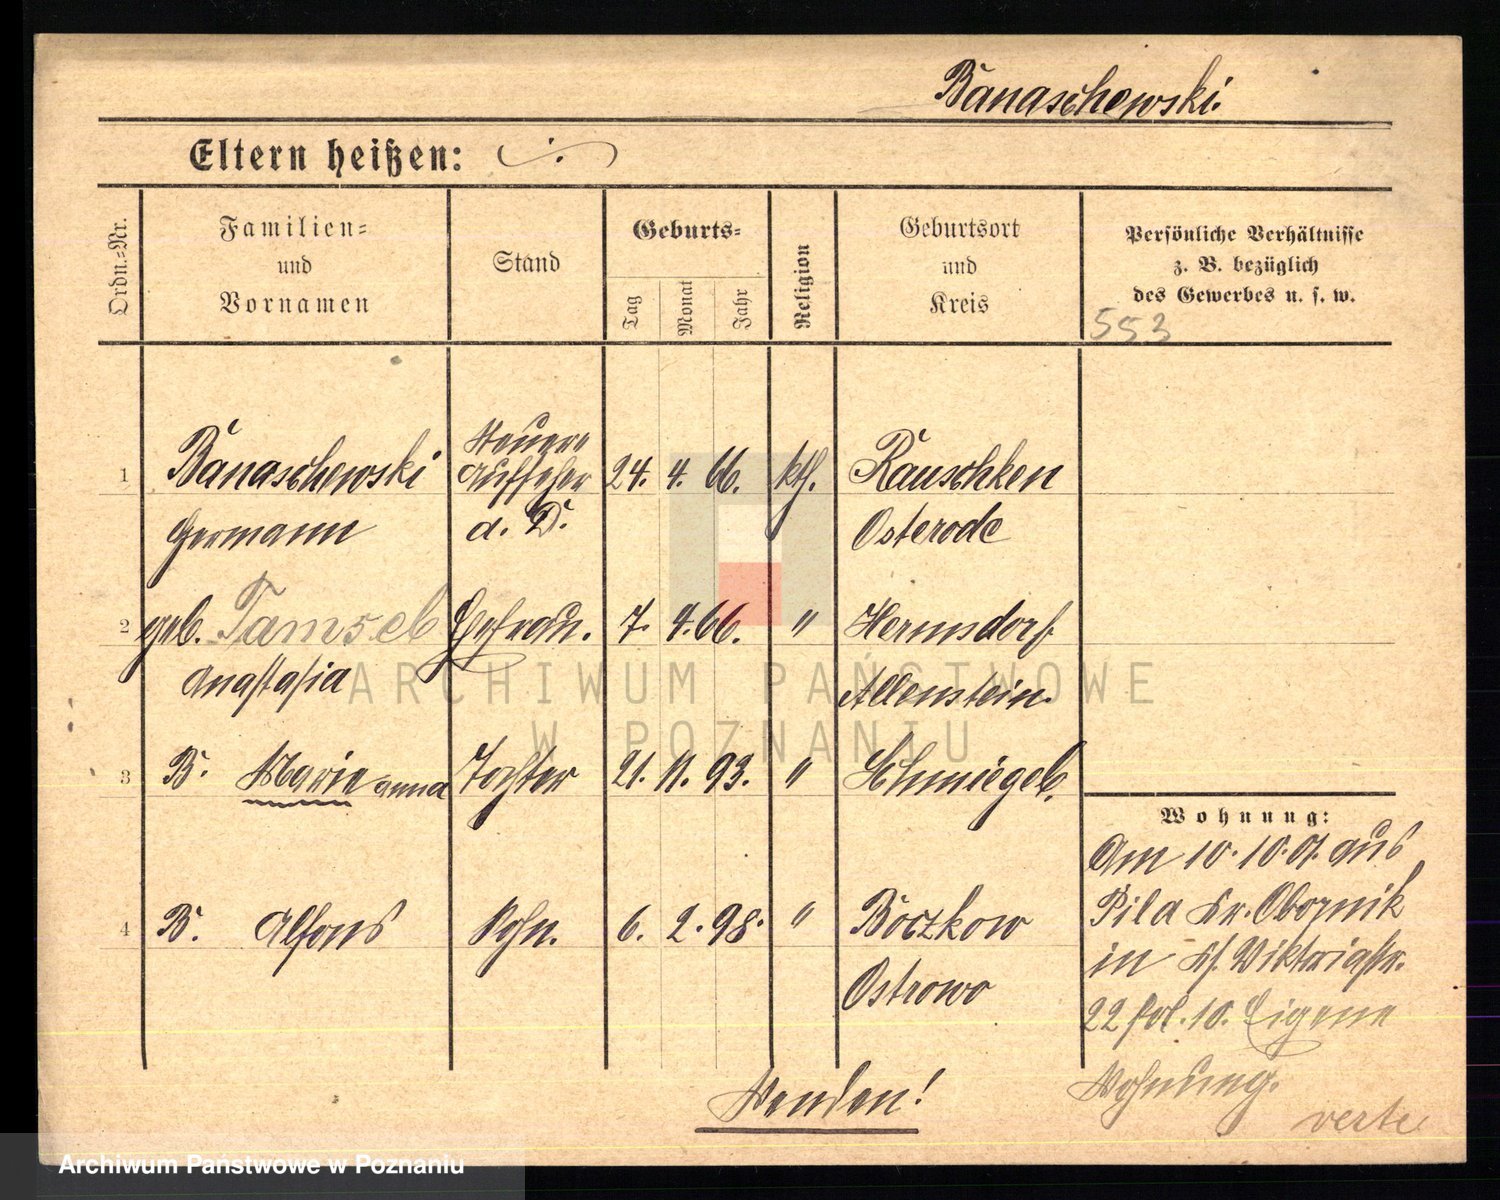 Banaschewski.
Eltern heißen: ./.
Ordn.=Nr.
Familien=
und
Vornamen
Stand
Geburts=
Tag
Monat
Jahr
Religion
Geburtsort
und
Kreis
Persönliche Verhältnisse
z. B. bezüglich
des Gewerbes u. s. w.
553
1 Banaschewski Steuer= Aufseher 24. 4. 66. kth. Rauschken
Hermann a. D. Osterode
2 geb. Tamseb Ehefrau. 7. 4. 66. " Hermsdorf
Anastasia Allenstein.
3 B. Marie anna Tochter 21. 11. 93. " Schmiegel.
4 B. Alfons Sohn. 6. 2. 98. " Boczkow
Ostrowo
Wohnung:
Am 10.10.01. aus
Pila Kr. Obornik
in Viktoriastr.
22 10. Eigene
Wohnung.
Wenden!
verte
ARCHIWUM PAŃSTWOWE
W POZNANIU
Archiwum Państwowe w Poznaniu